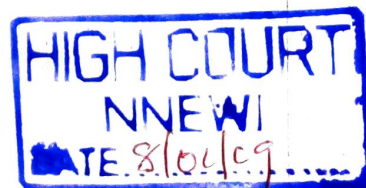 HIGH COURT
NNEWI
DATE 8/01/09